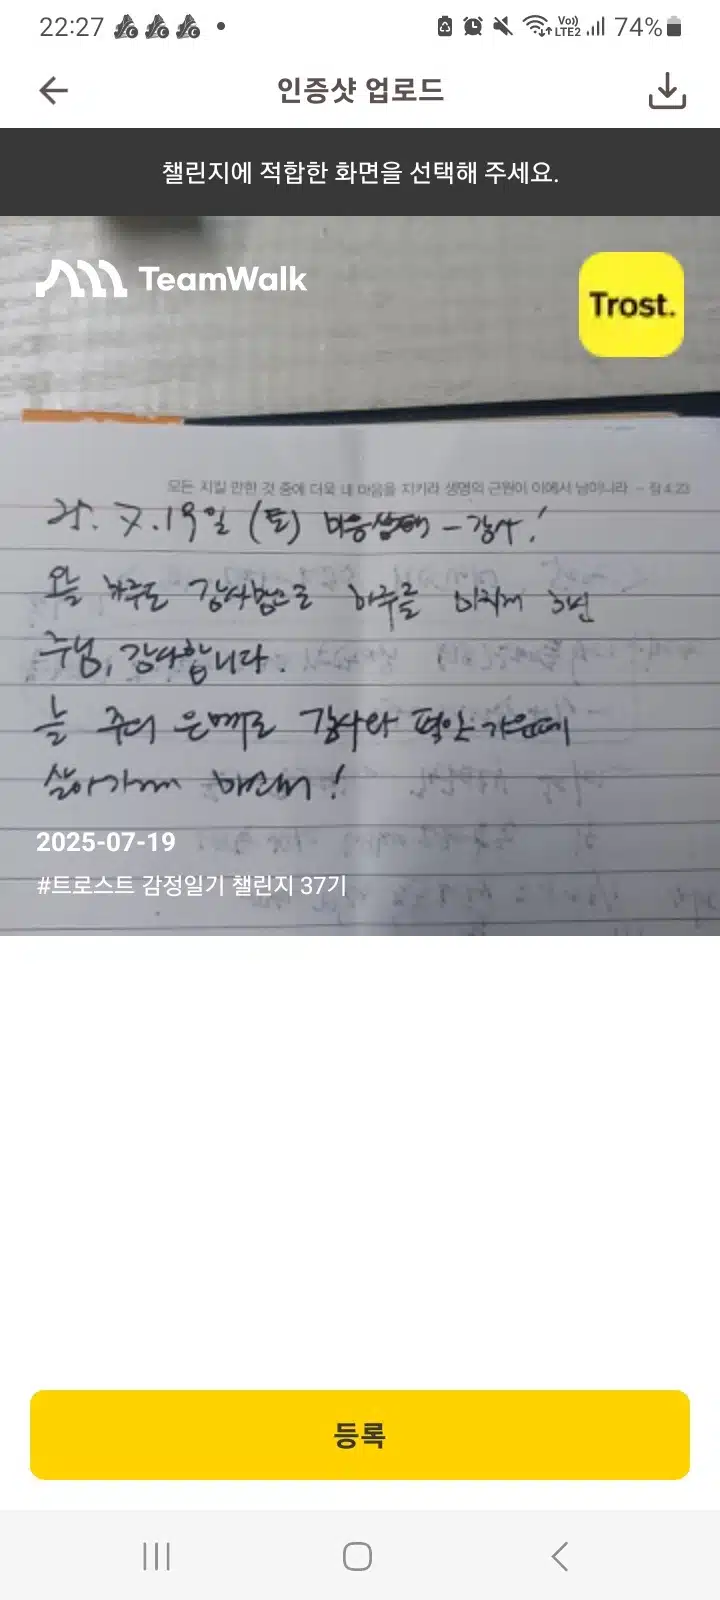 22:27
Vo))
LTE2
74%
인증샷 업로드
챌린지에 적합한 화면을 선택해 주세요.
TeamWalk
Trost.
모든 지킬 만한 것 중에 더욱 네 마음을 지키라 생명의 근원이 이에서 남이니라 - 잠 4:23
25. 7. 19일 (토) 마음상태 - 감사!
오늘 하루도 감사함으로 하루를 마치게 하신
주님, 감사합니다.
늘 주의 은혜로 감사와 평안 가운데
살아가게 하소서!
2025-07-19
#트로스트 감정일기 챌린지 37기
등록